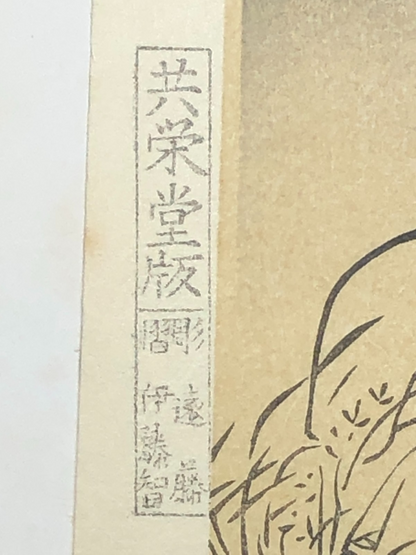 共栄堂版
彫 遠藤
摺 伊藤智